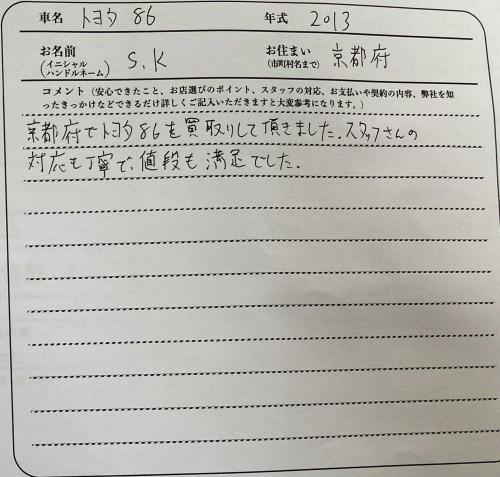 車名 トヨタ 86 年式 2013
お名前 (イニシャル ハンドルネーム) S.K お住まい (市町村名まで) 京都府
コメント(安心できたこと、お店選びのポイント、スタッフの対応、お支払いや契約の内容、弊社を知
ったきっかけなどできるだけ詳しくご記入いただきますと大変参考になります。)
京都府でトヨタ86を買取りして頂きました.スタッフさんの
対応も丁寧で、値段も満足でした.